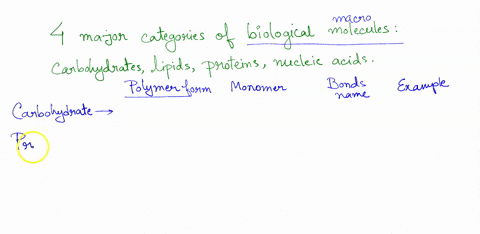 4 major categories of biological macro molecules :
Carbohydrates, lipids, proteins, nucleic acids.
Polymer form Monomer Bonds name Example
Carbohydrate →
Pr